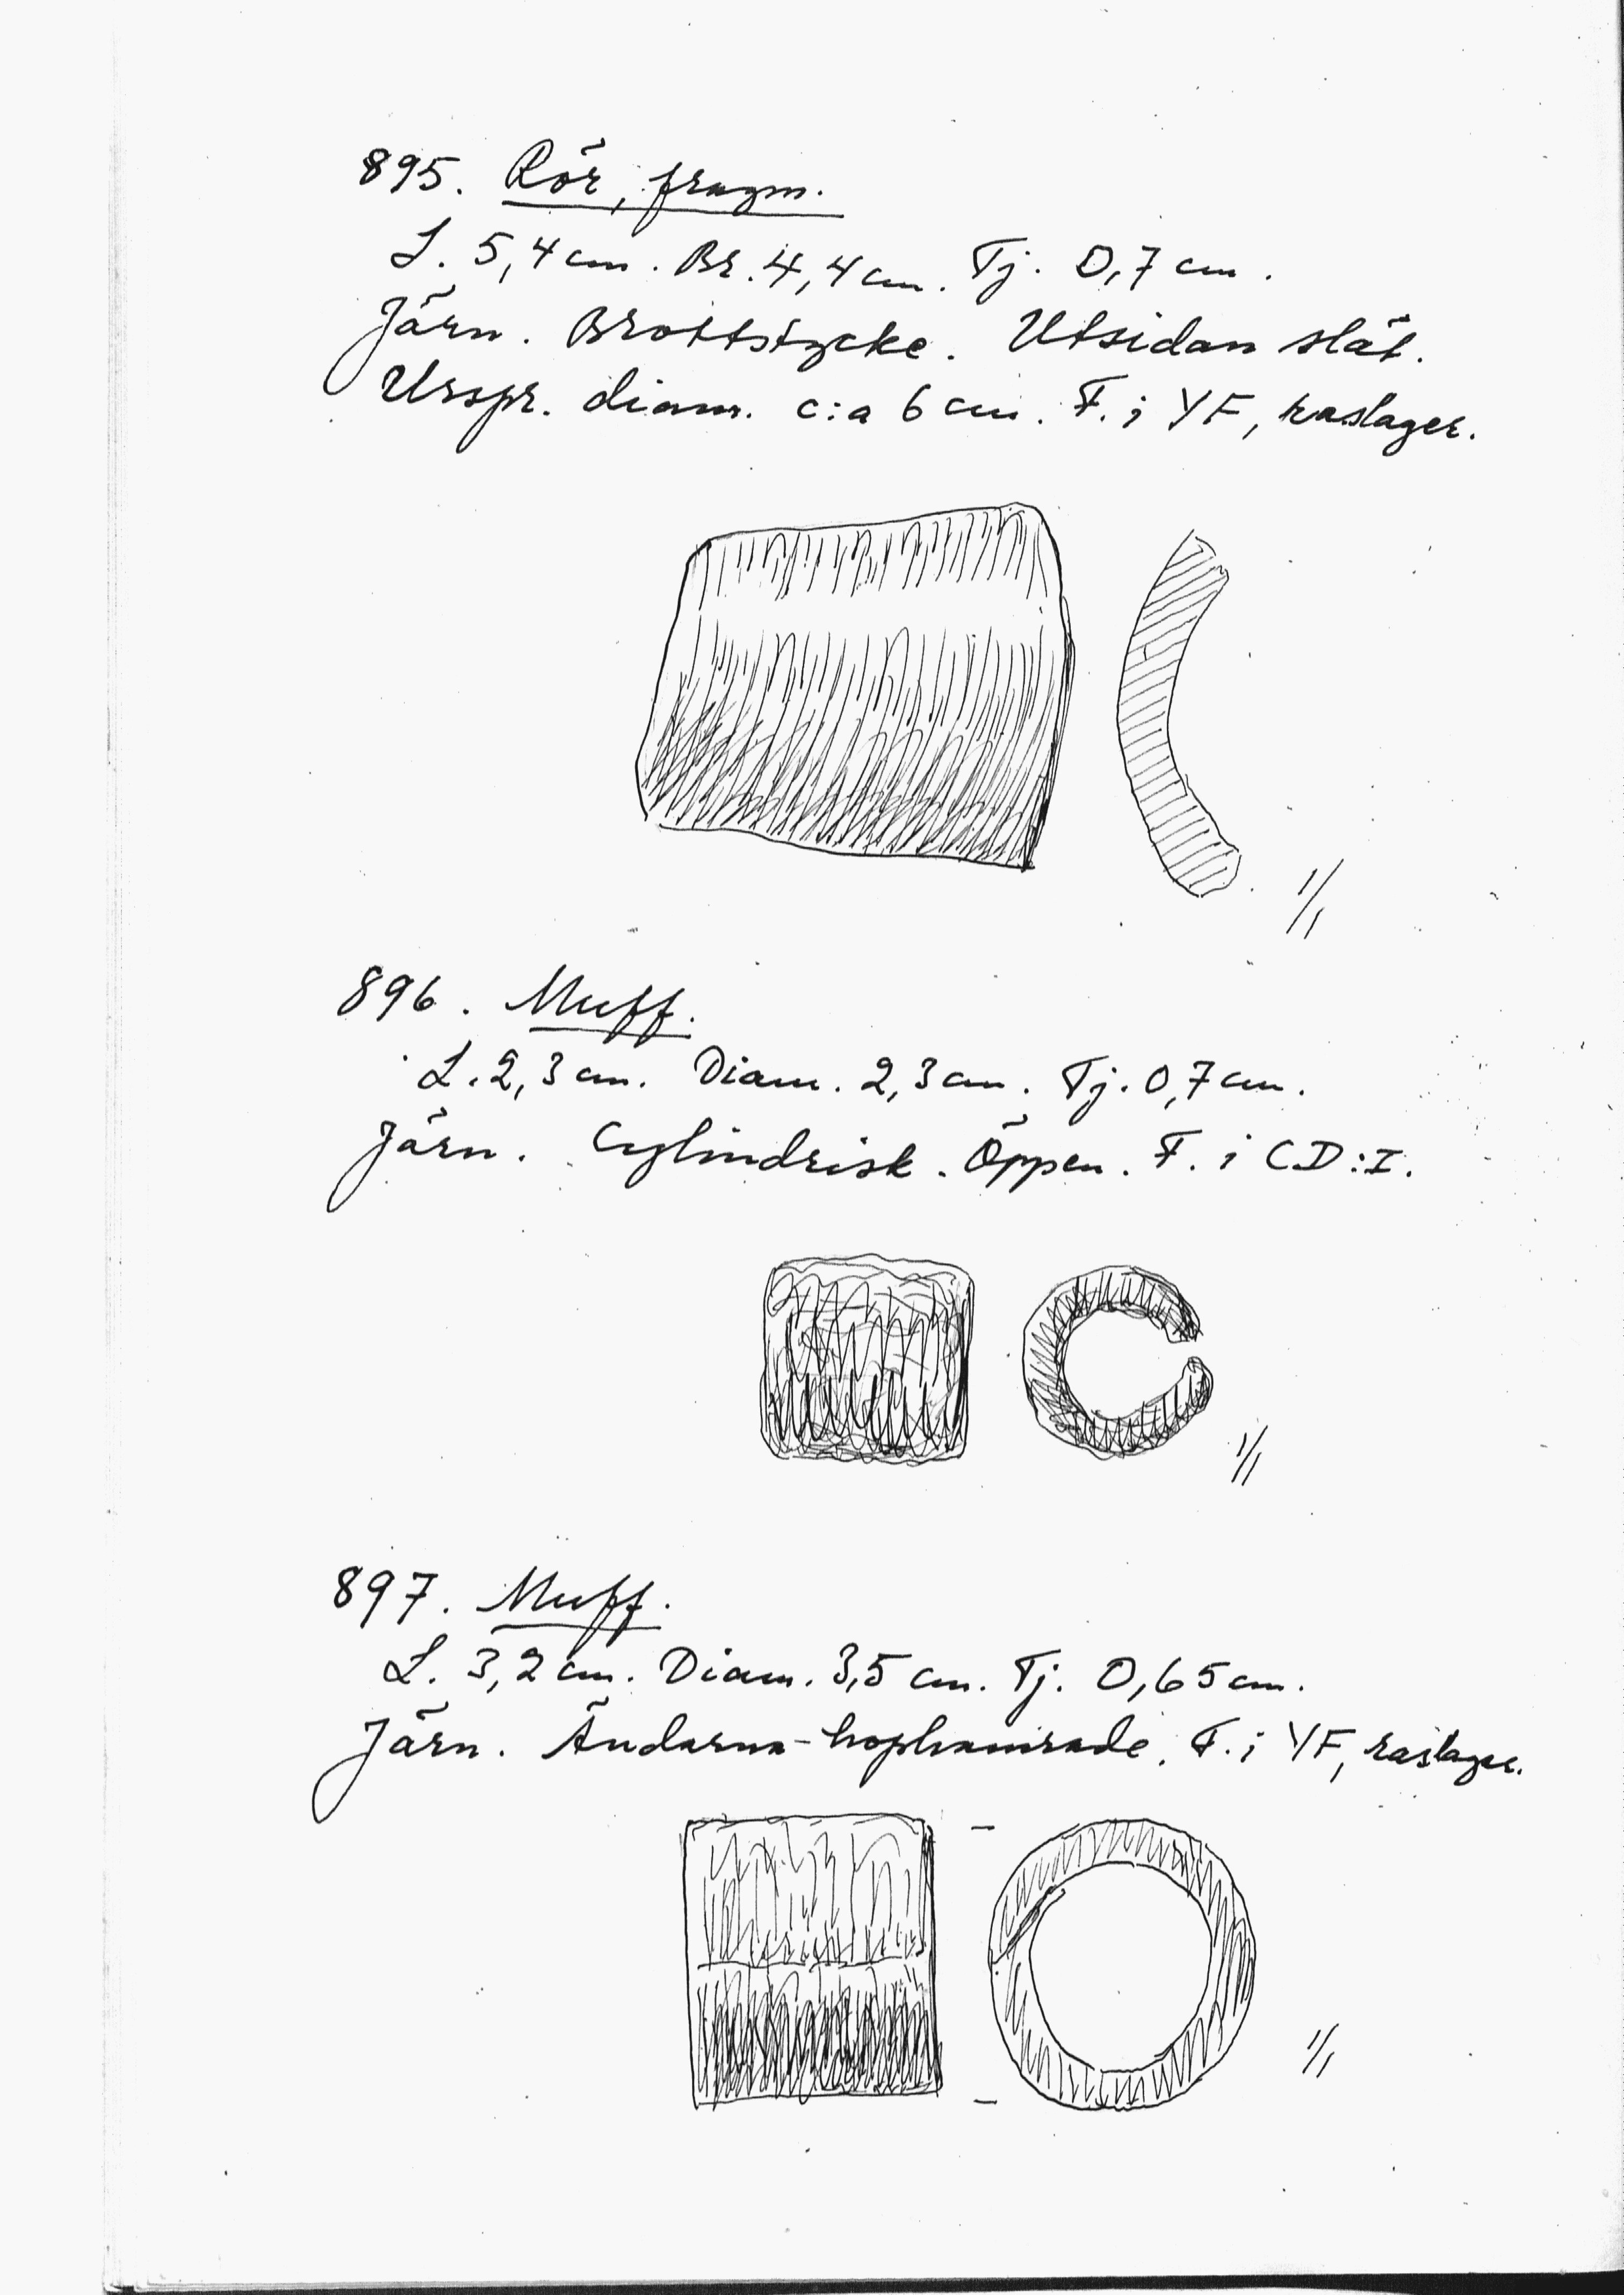 895. Rör, fragm.
L. 5,4 cm. Br. 4,4 cm. Tj. 0,7 cm.
Järn. Brottstycke. Utsidan slät.
Urspr. diam. c:a 6 cm. F. i YF, raslager.
1/1
896. Muff.
L. 2,3 cm. Diam. 2,3 cm. Tj. 0,7 cm.
Järn. Cylindrisk. Öppen. F. i CD:I.
1/1
897. Muff.
L. 3,2 cm. Diam. 3,5 cm. Tj. 0,65 cm.
Järn. Ändarna hophamrade. F. i YF, raslager.
1/1